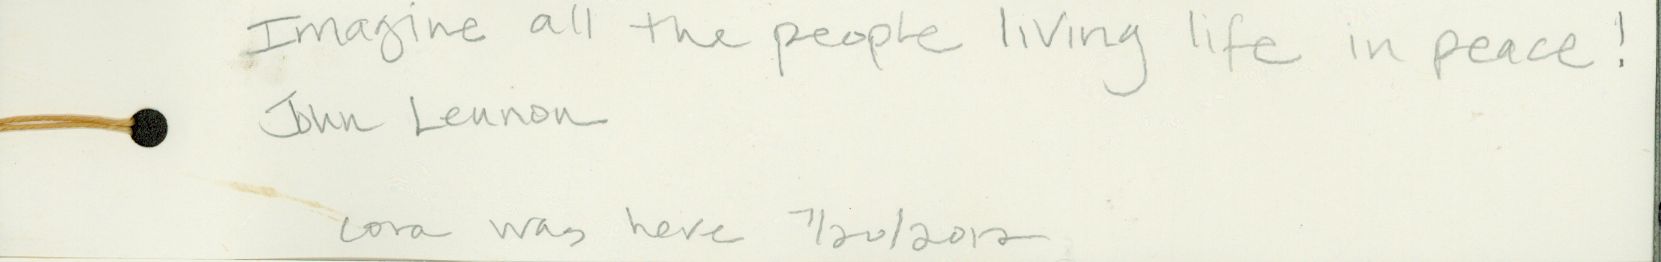 Imagine all the people living life in peace!
John Lennon
Cora was here 7/20/2012